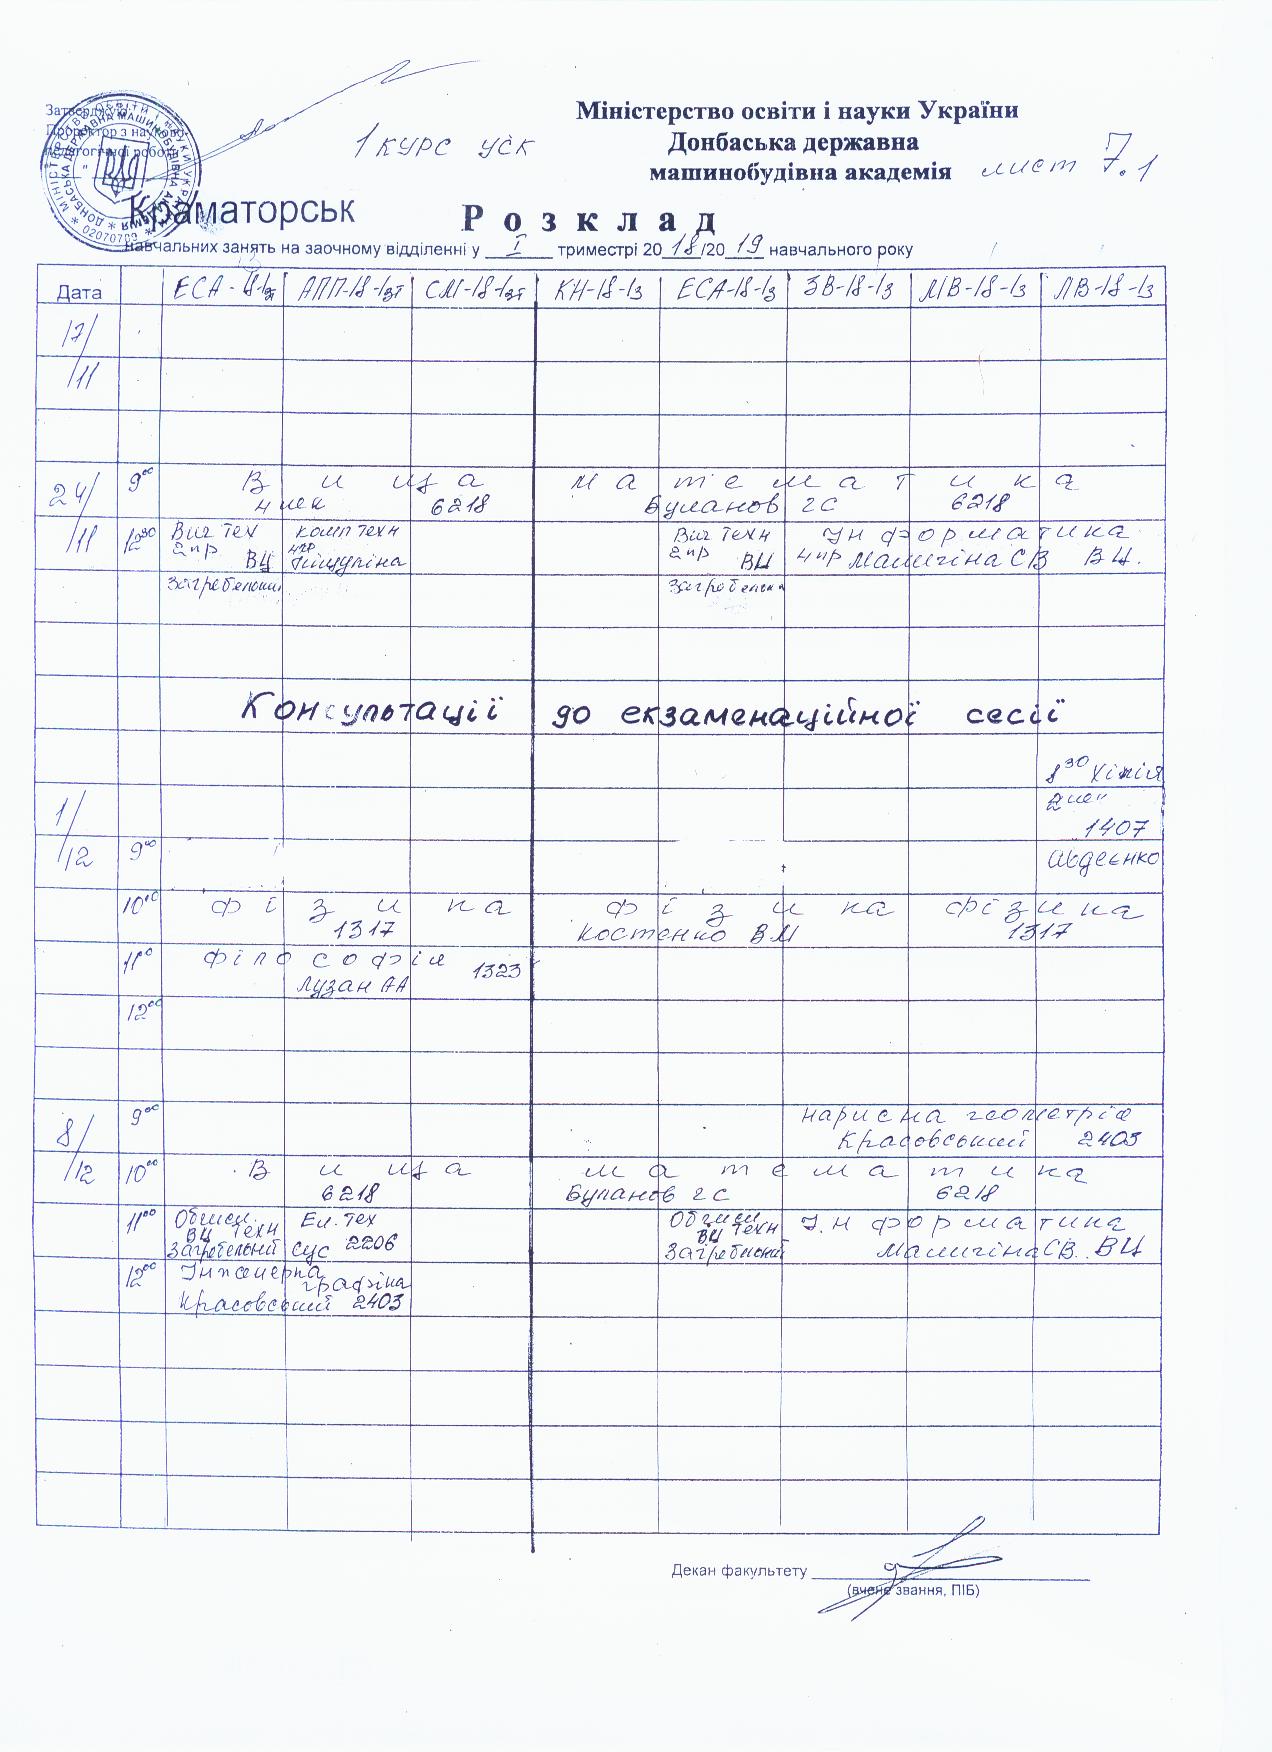 Затверджую
Проректор з науково-
педагогічної роботи
Міністерство освіти і науки України
Донбаська державна
машинобудівна академія
1 курс уск
лист 7.1
Краматорськ
Розклад
навчальних занять на заочному відділенні у I триместрі 2018/2019 навчального року
Дата ЕСА-18-1зт АПП-18-1зт СМ-18-1зт КН-18-1з ЕСА-18-1з ЗВ-18-1з МВ-18-1з ЛВ-18-1з
17/11
24/11 9⁰⁰ Вища математика
4 лек 6218 Буланов ГС 6218
12³⁰ Виг техн комп техн Виг техн Інформатика
2 пр ВЦ 4 пр 2 пр ВЦ 4 пр Малигіна СВ ВЦ.
Загребельний Загребельн
Консультації до екзаменаційної сесії
8³⁰ Хімія
1/12 2 лек
1407
9⁰⁰ Авдеєнко
10⁰⁰ фізика фізика фізика
1317 Костенко ВМ 1317
11⁰⁰ філософія 1323
Лузан АА
12⁰⁰
8/12 9⁰⁰ нарисна геометрія
Красовський 2403
10⁰⁰ Вища математика
6218 Буланов ГС 6218
11⁰⁰ Обчисл. Ел. тех Обчисл Інформатика
ВЦ техн ВЦ техн
Загребельний Сус 2206 Загребельний Малигіна СВ. ВЦ
12⁰⁰ Інженерна графіка
Красовський 2403
Декан факультету
(вчене звання, ПІБ)